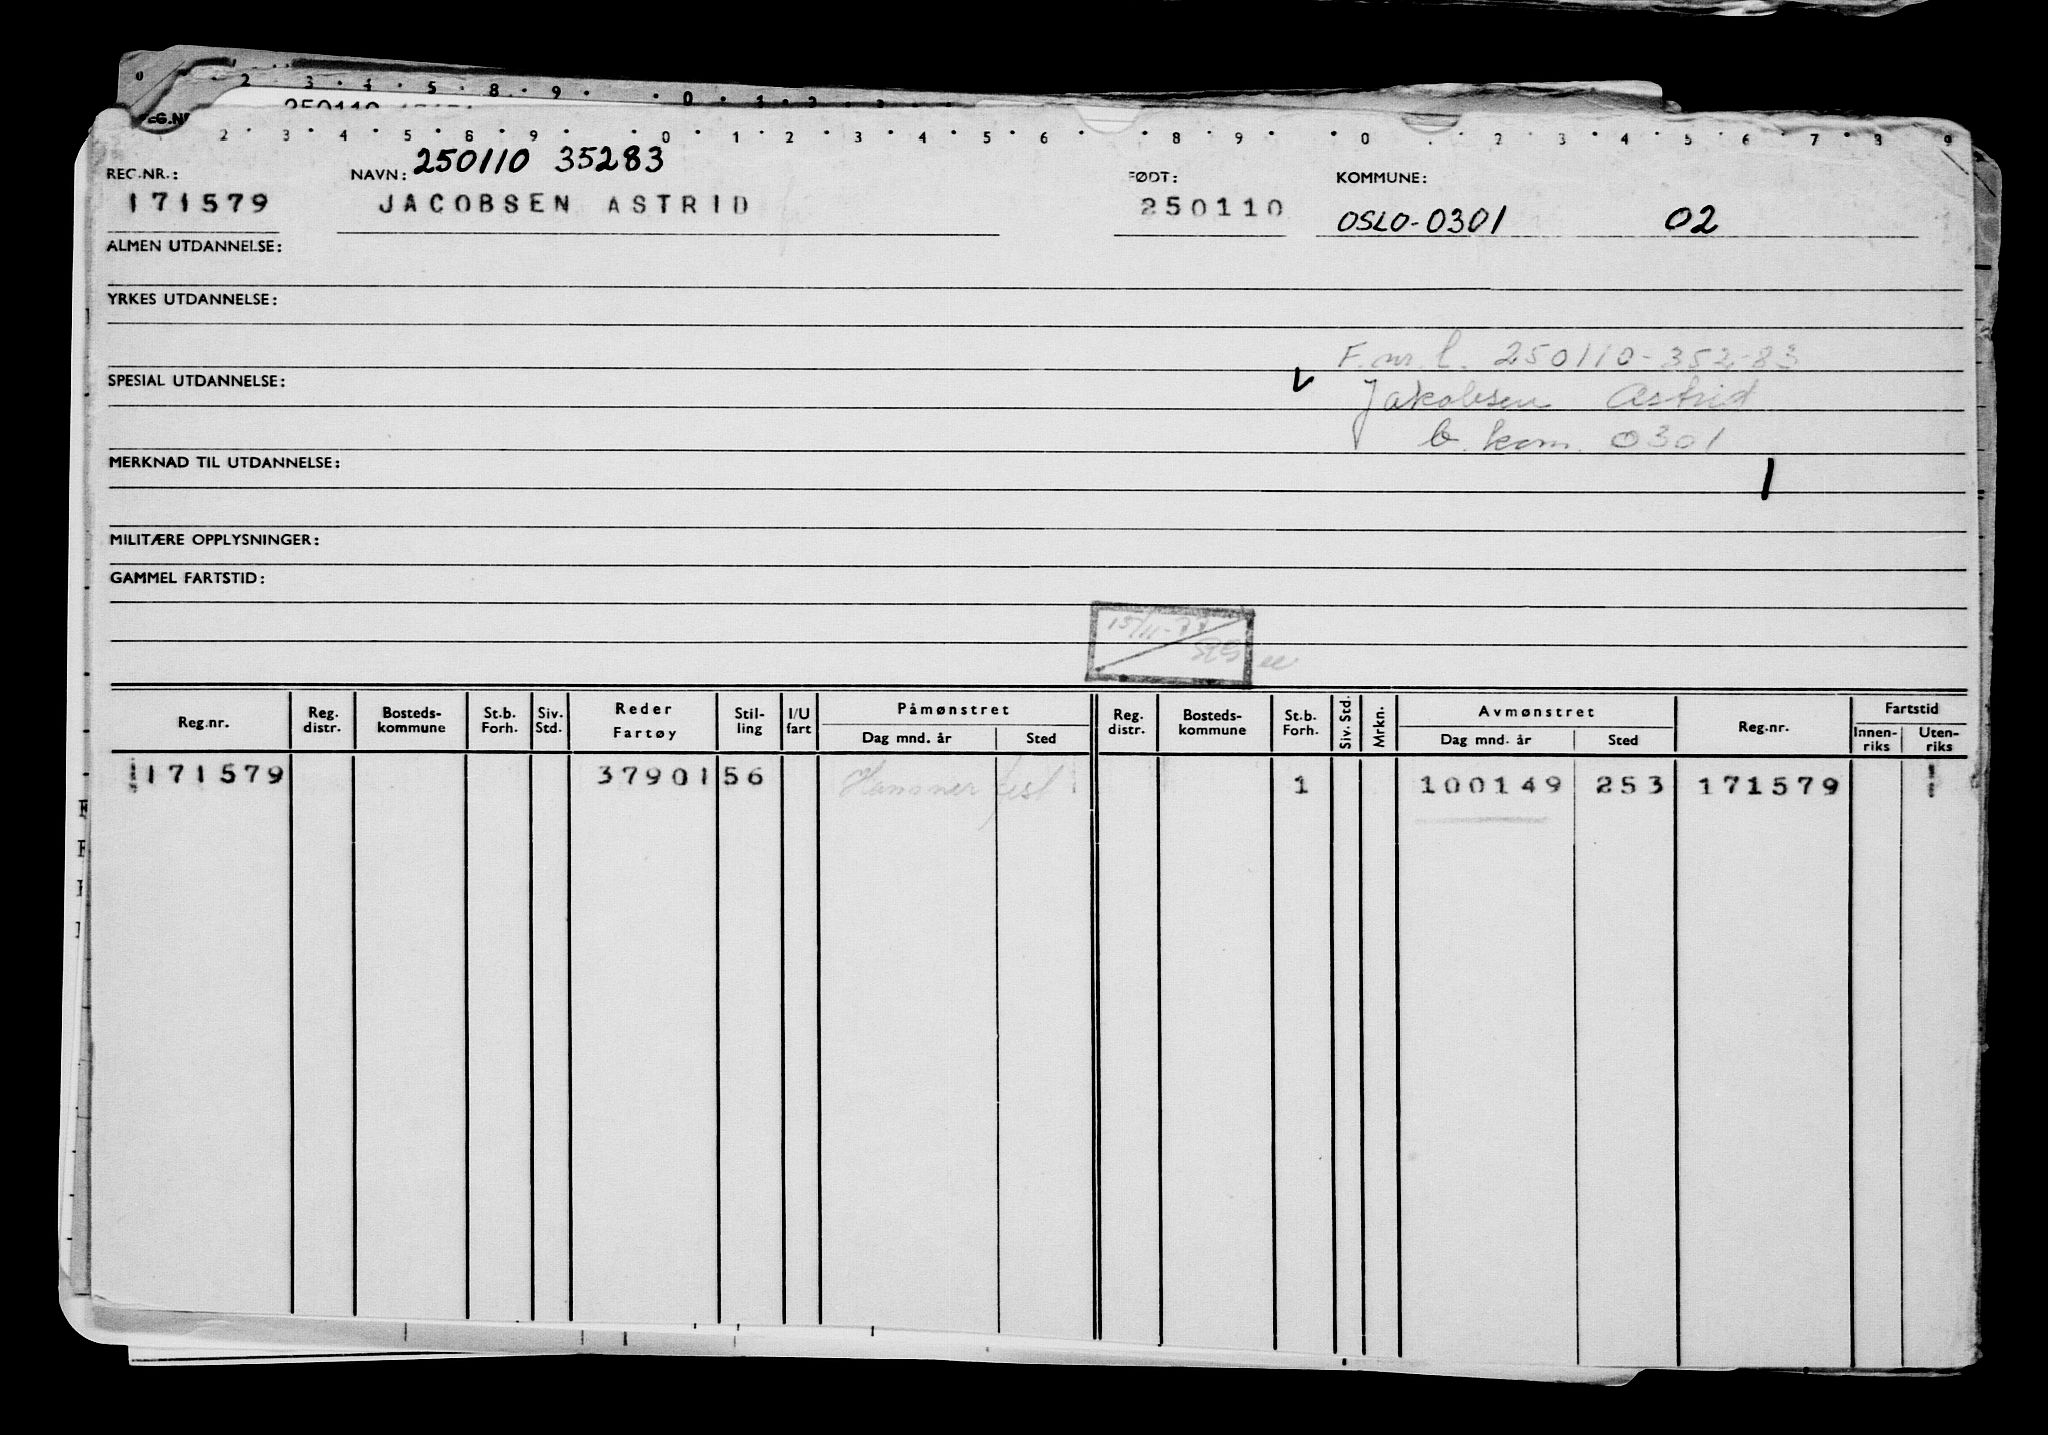 0 2 3 4 5 8 9 0 1 2 3
250110
EG.NR
2 3 4 5 6 9 0 1 2 3 4 5 6 8 9 0 2 3 4 5 6 7 8 9
250110 35283
REG.NR.: NAVN: FØDT: KOMMUNE:
171579 JACOBSEN ASTRID 250110 OSLO-0301 02
ALMEN UTDANNELSE:
YRKES UTDANNELSE:
F.nr. l. 250110-352-83
SPESIAL UTDANNELSE:
Jakobsen Astrid
b. kom. 0301
MERKNAD TIL UTDANNELSE:
MILITÆRE OPPLYSNINGER:
GAMMEL FARTSTID:
15/11-77
Reg.nr. Reg. distr. Bosteds-kommune St.b. Forh. Siv. Std. Reder Fartøy Stil-ling I/U fart Påmønstret Dag mnd. år Sted Reg. distr. Bosteds-kommune St.b. Forh. Siv. Std. Mrkn. Avmønstret Dag mnd. år Sted Reg.nr. Fartstid Innen-riks Uten-riks
171579 37901 56 Hammerfest 1 100149 253 171579